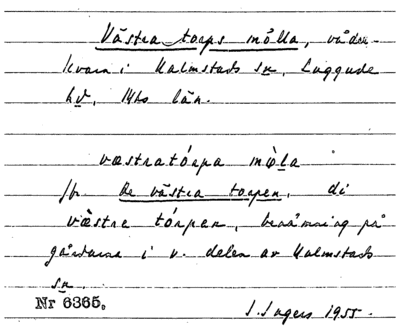 Västra torps mölla, väder-
kvarn i Halmstads sn, Luggude
hd, Mhs län.
væstratórpa mø̀la
jfr De västra torpen, di
væ̀stre tórpen, benämning på
gårdarna i v. delen av Halmstads
sn.
Nr 6365. I. Ingers 1955.